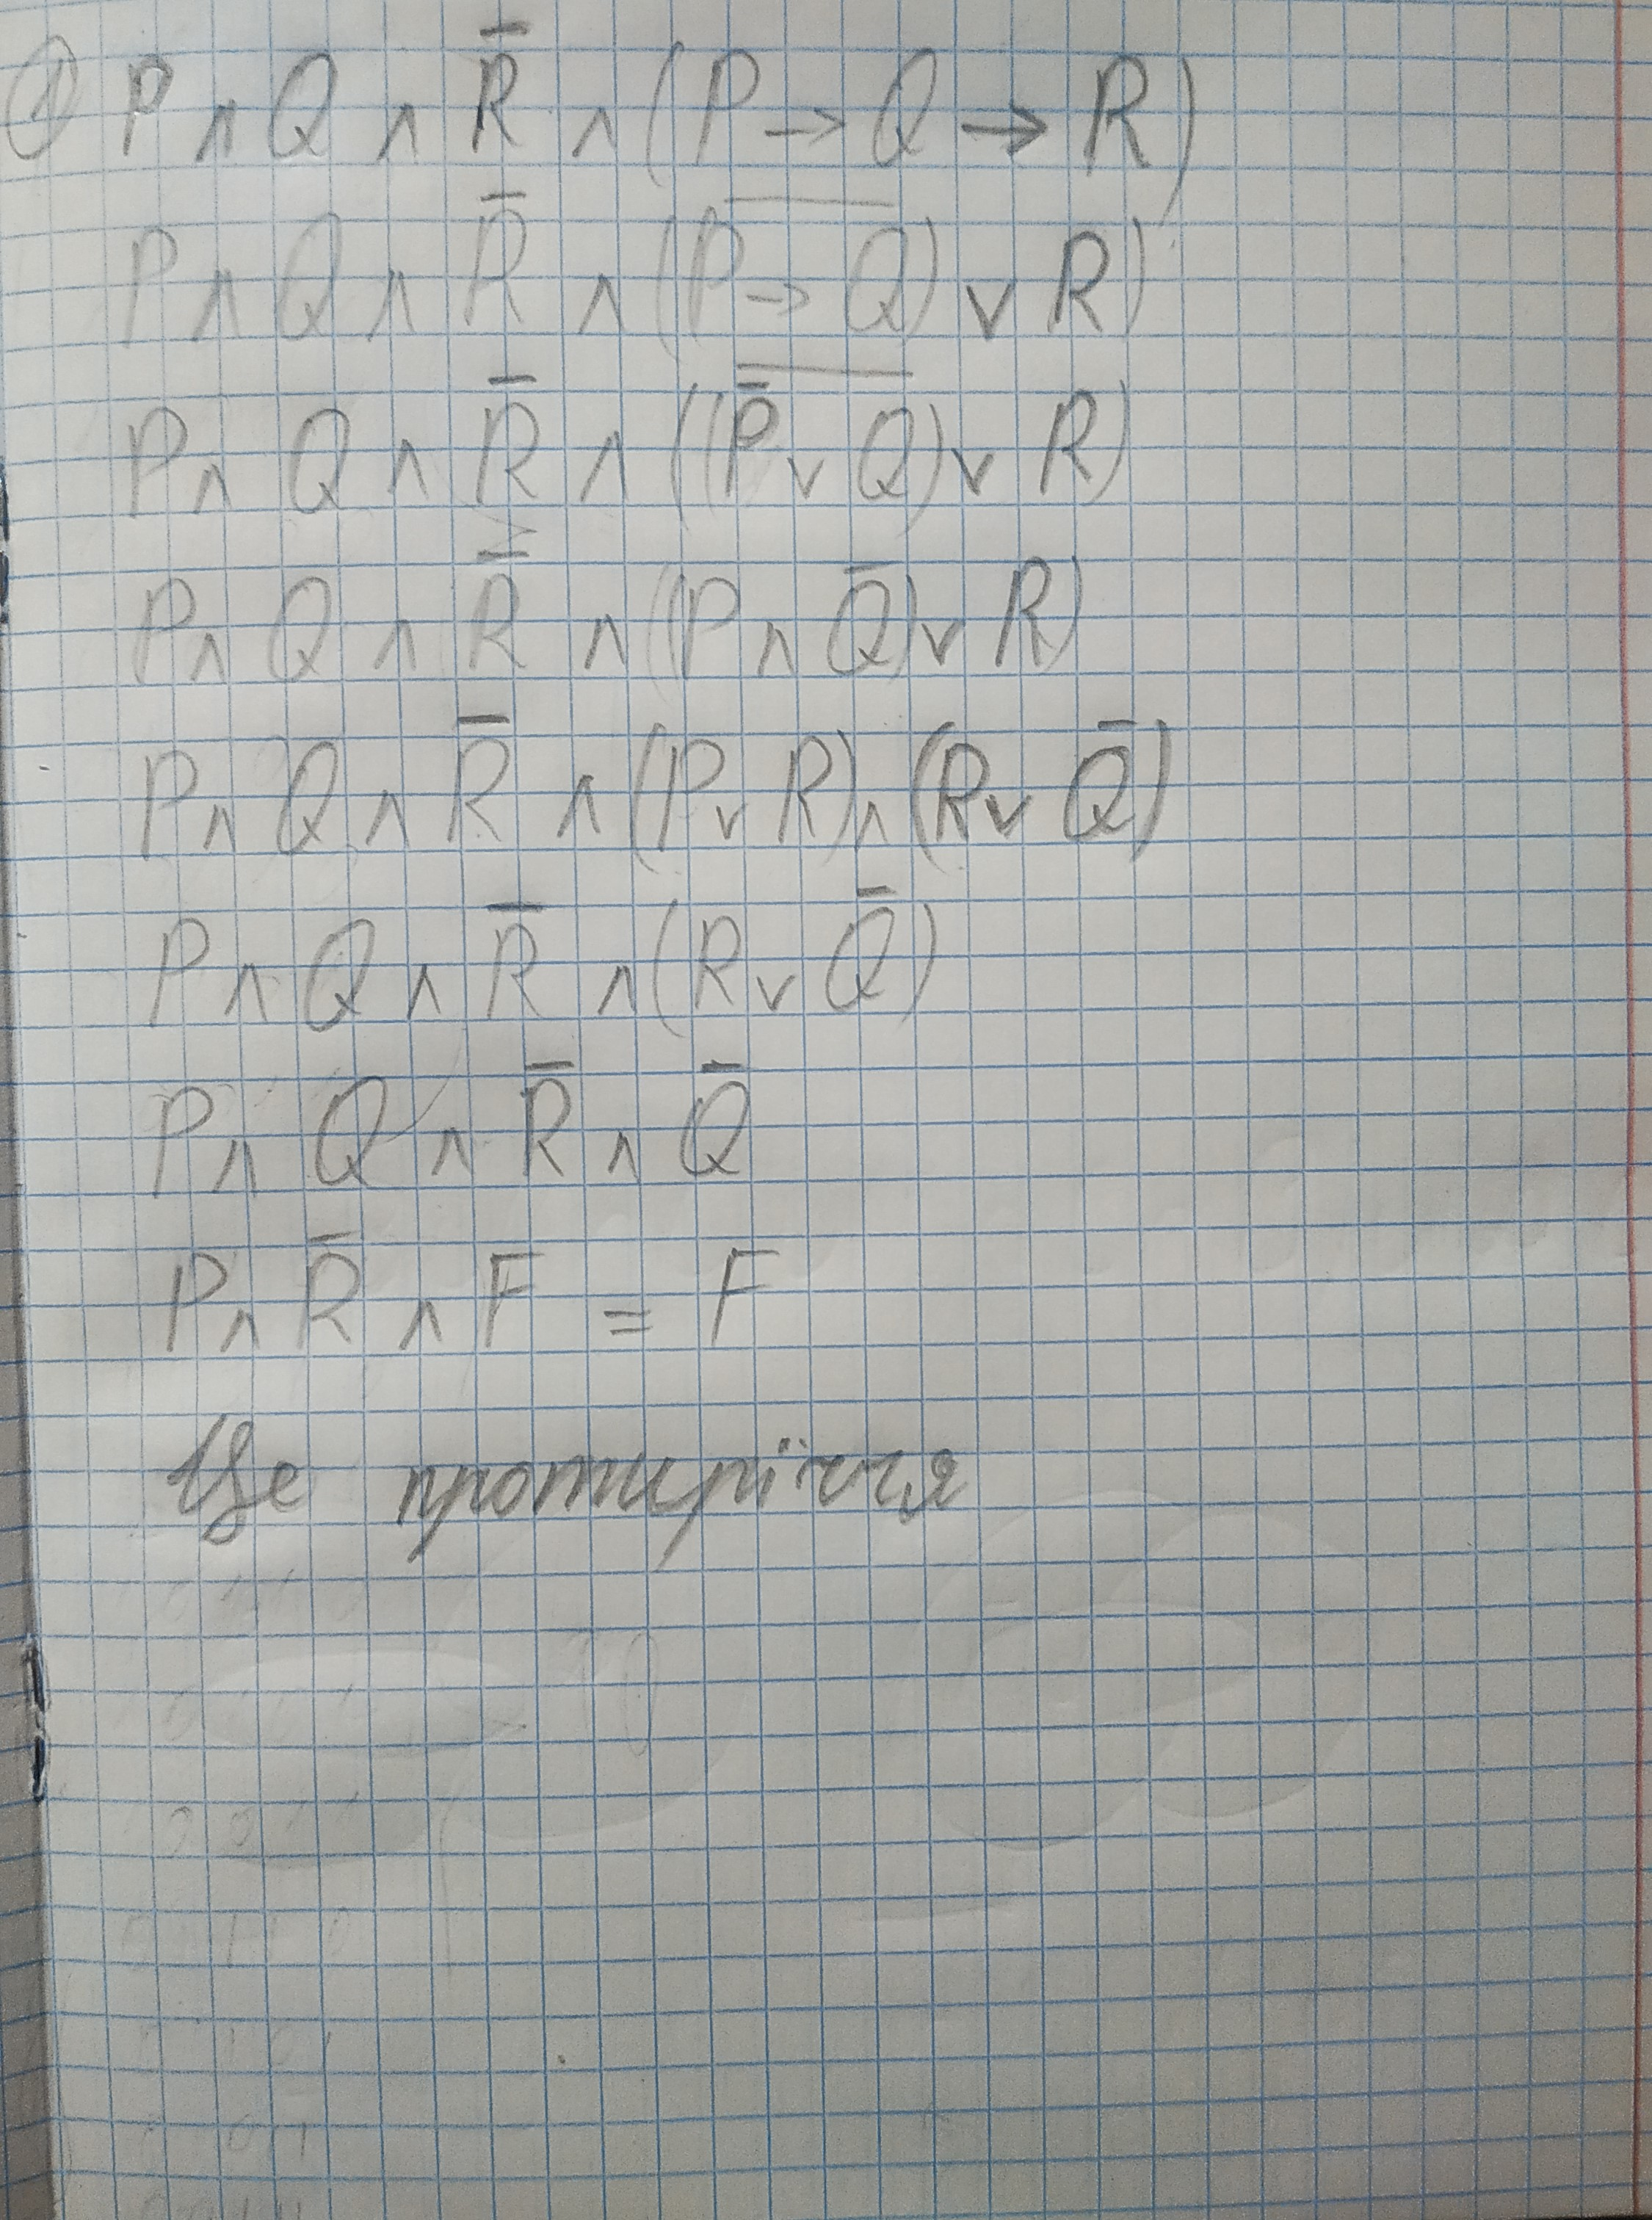 ① P ∧ Q ∧ R̅ ∧ (P → Q → R)
P ∧ Q ∧ R̅ ∧ (P̅ ̅→̅ ̅Q̅) ∨ R)
P ∧ Q ∧ R̅ ∧ ((P̅̅ ̅∨̅ ̅Q̅) ∨ R)
P ∧ Q ∧ R̅ ∧ ((P ∧ Q̅) ∨ R)
P ∧ Q ∧ R̅ ∧ (P ∨ R) ∧ (R ∨ Q̅)
P ∧ Q ∧ R̅ ∧ (R ∨ Q̅)
P ∧ Q ∧ R̅ ∧ Q̅
P ∧ R̅ ∧ F = F
Це протиріччя